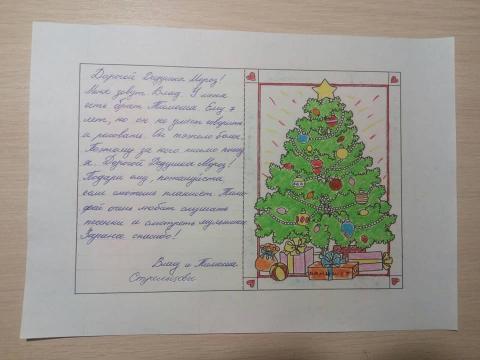 Дорогой Дедушка Мороз!
Меня зовут Влад. У меня
есть брат Тимоша. Ему 7
лет, но он не умеет говорить
и рисовать. Он тяжело болен.
Поэтому за него письмо пишу
я. Дорогой Дедушка Мороз!
Подари ему пожалуйста
если сможешь планшет. Тимо-
фей очень любит слушать
песенки и смотреть мультики
Заранее спасибо!
Влад и Тимоша
Стрельцовы
планшет